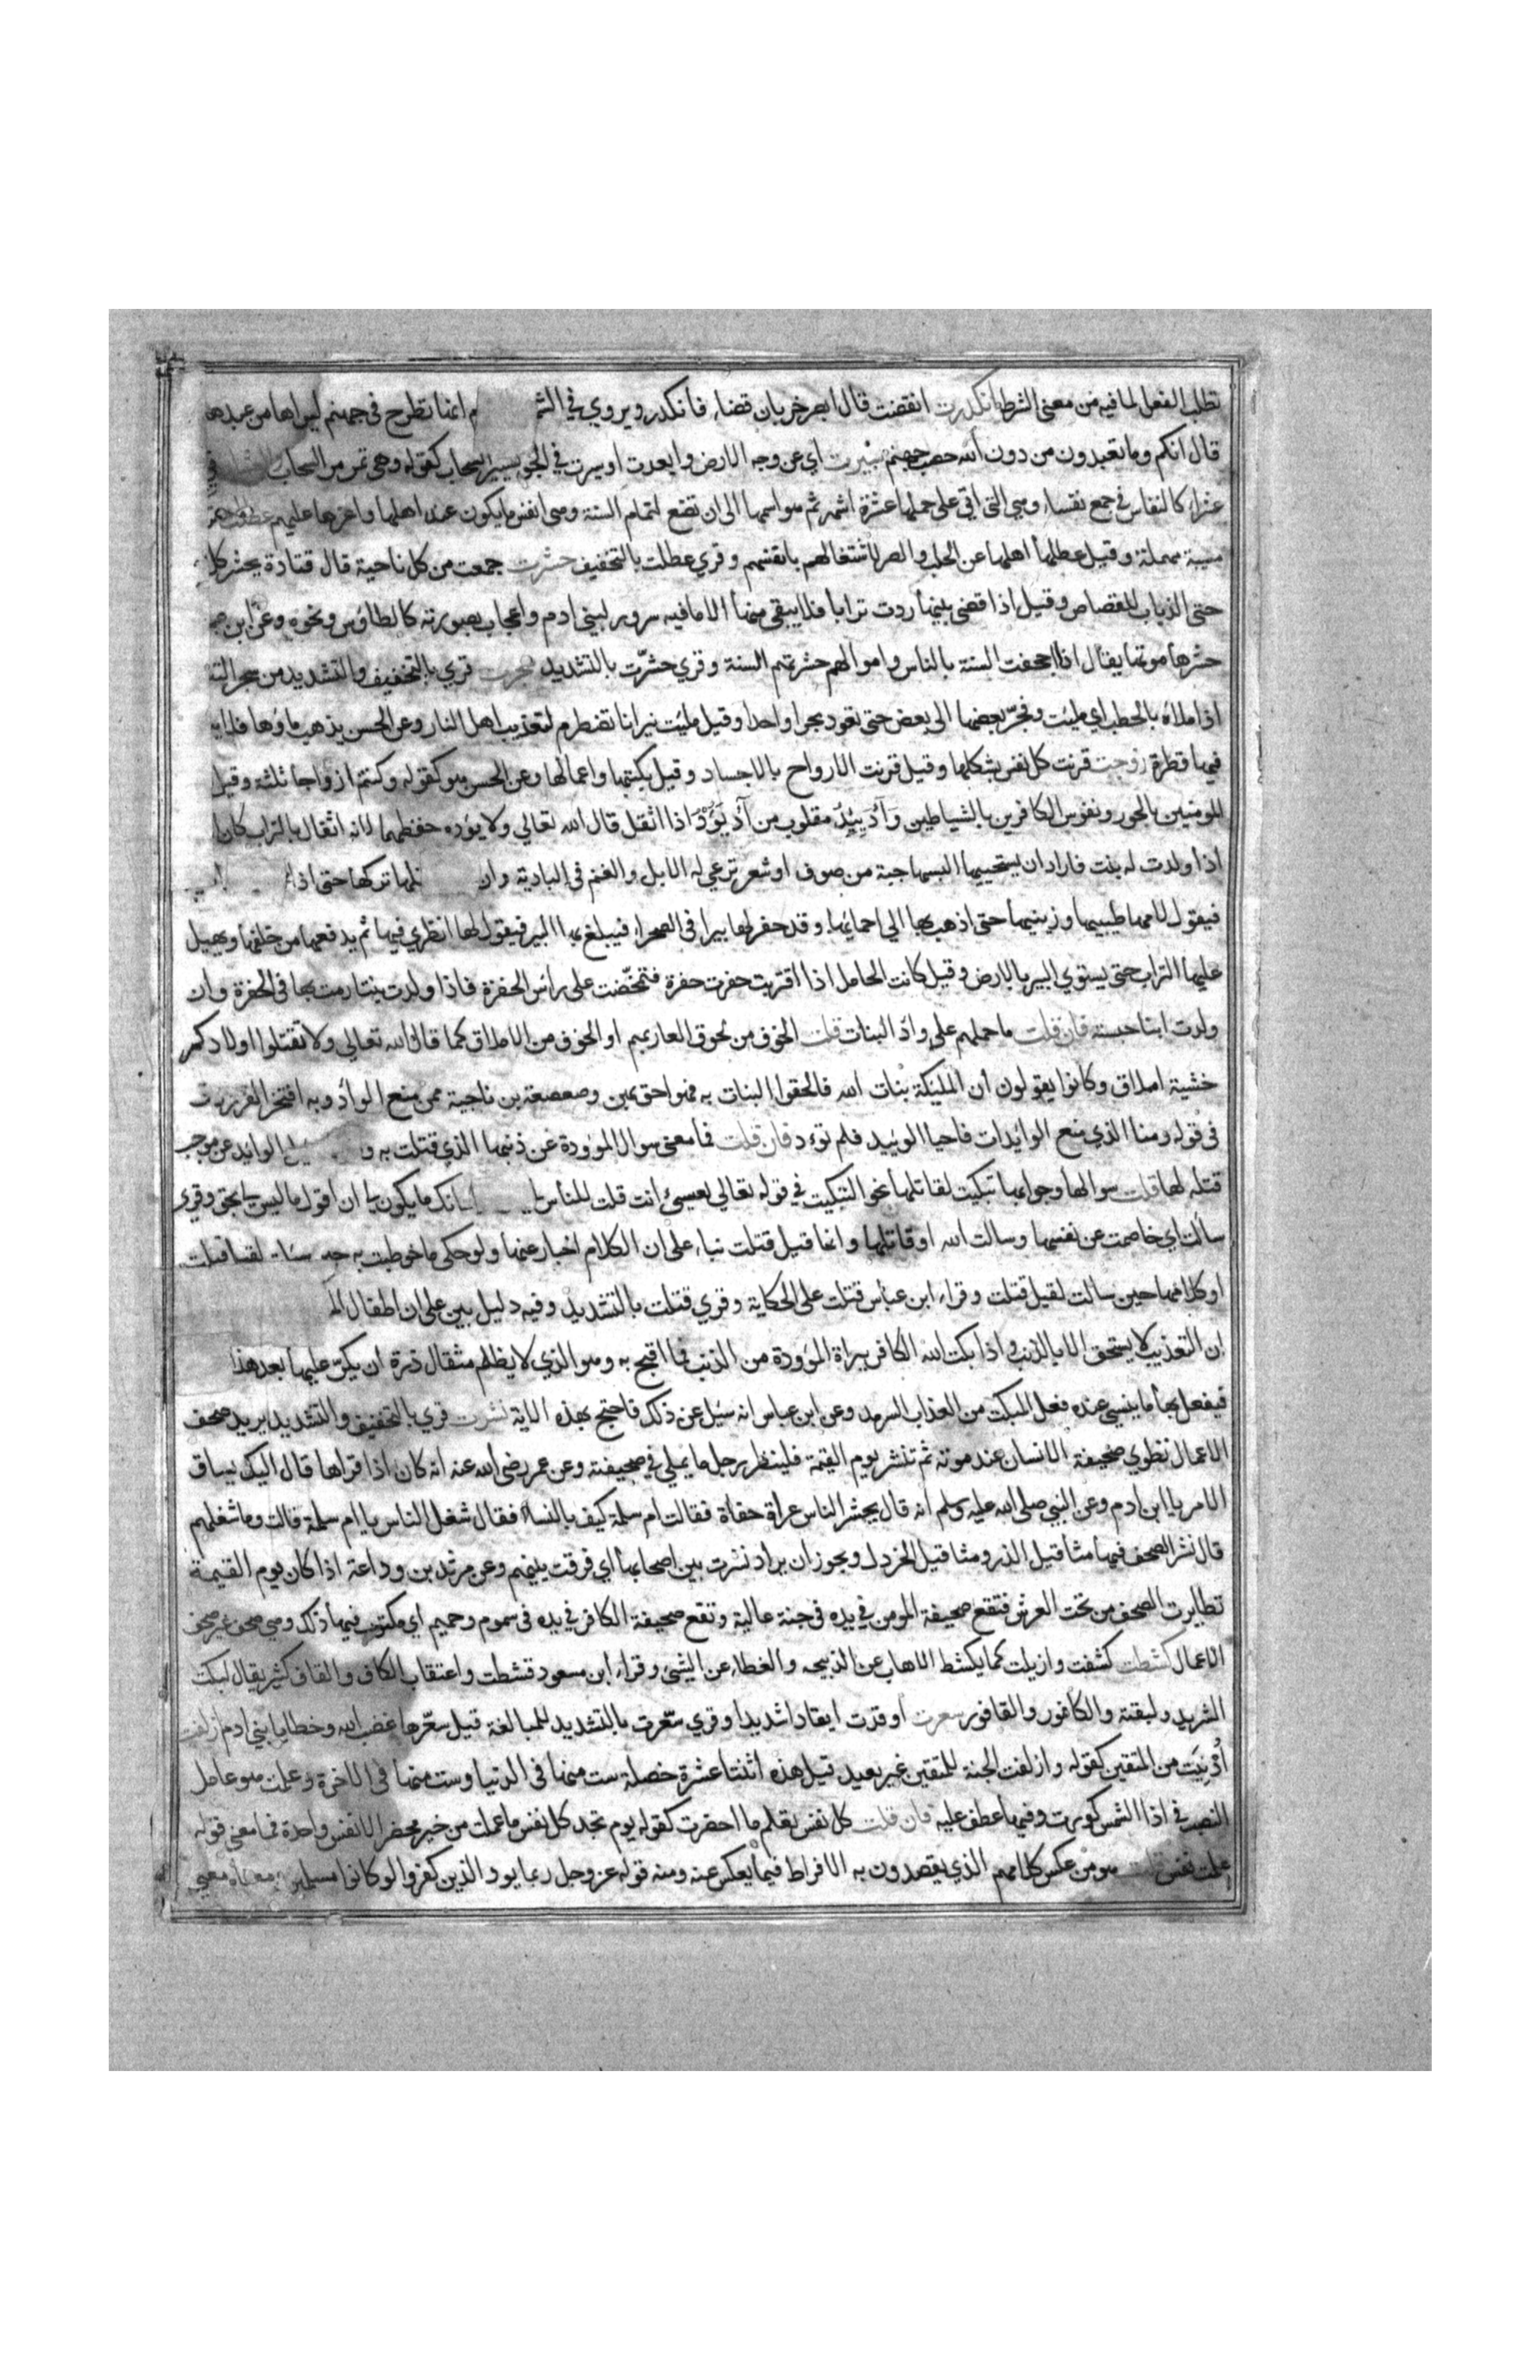 تطلب الفعل لما فيه من معنى الشرط انكدرت انقضت قال ابصر خربان فضاء فانكدر ويروي في الشم انها تطرح في جهنم ليراها من عبدها
قال انكم وما تعبدون من دون الله حصب جهنم سيرت اي عن وجه الارض وابعدت او سيرت في الجو تسيير السحاب كقوله وهي تمر مر السحاب العشار في
عشراء كالنفاس في جمع نفساء وهي التي اتي على حملها عشرة اشهر ثم هو اسمها الى ان تضع لتمام السنة وهي انفس ما يكون عند اهلها واعزها عليهم عطلت
مسيبة مهملة وقيل عطلها اهلها عن الحلب والصر لاشتغالهم بانفسهم وقري عطلت بالتخفيف حشرت جمعت من كل ناحية قال قتادة يحشر كل
حتى الذباب للقصاص وقيل اذا قضي بينها ردت ترابا فلا يبقى منها الا ما فيه سرور لبني ادم واعجاب بصورته كالطاؤس ونحوه وعن ابن
حشرها موتها يقال اذا اجحفت السنة بالناس واموالهم حشرتهم السنة وقري حشّرت بالتشديد سجرت قري بالتخفيف والتشديد من سجر التن
اذا ملاه بالحطب اي مليت وفجّر بعضها الى بعض حتى تعود بحرا واحدا وقيل مليت نيرانا تضطرم لتعذيب اهل النار وعن الحسن يذهب ماؤها فلا
فيها قطرة زوجت قرنت كل نفس بشكلها وقيل قرنت الارواح بالاجساد وقيل بكتبها واعمالها وعن الحسن هو كقوله وكنتم ازواجا ثلثة وقيل
المومنين بالحور ونفوس الكافرين بالشياطين وَأَدَ يَئِدُ مقلوب من آدَ يَؤُدُ اذا اثقل قال الله تعالي ولا يؤده حفظهما لانه اثقال بالتراب كان
اذا ولدت له بنت فاراد ان يستحييها البسها جبة من صوف او شعر ترعي له الابل والغنم في البادية وان تلها تركها حتى اذا
فيقول لامها طيبيها وزينيها حتى اذهب بها الي احمائها وقد حفر لها بيرا في الصحراء فيبلغ بها البير فيقول لها انظري فيها ثم يدفعها من خلفها ويهيل
عليها التراب حتى يستوي البير بالارض وقيل كانت الحامل اذا اقتربت حفرت حفرة فتمخّضت على راس الحفرة فاذا ولدت بنتا رمت بها في الحفرة وان
ولدت ابنا حبسته فان قلت ما حملهم على واد البنات قلت الخوف من لحوق العار بهم او الخوف من الاملاق كما قال الله تعالي ولا تقتلوا اولادكم
خشية املاق وكانوا يقولون ان الملئكة بنات الله فالحقوا البنات به فهو احق بهن وصعصعة بن ناجية ممن منع الواد وبه افتخر الفرزدق
في قوله ومنا الذي منع الوائدات فاحيا الوئيد فلم توءد فان قلت فما معنى سوال الموودة عن ذنبها الذي قتلت به و الوائد عن موجب
قتله لها قلت سوالها وجوابها تبكيت لقاتلها نحو التبكيت في قوله تعالي لعيسى اانت قلت للناس سبحانك ما يكون لي ان اقول ما ليس لي بحق وقري
سالت اي خاصمت عن نفسها وسالت الله او قاتلها وانما قيل قتلت بناء على ان الكلام اخبار عنها ولو حكي ما خوطبت به حين سئلت لقيل قتلت
او كلامها حين سالت لقيل قتلت وقراء ابن عباس قتلت على الحكاية وقري قتلت بالتشديد وفيه دليل بين على ان اطفال الم
ان التعذيب لا يستحق الا بالذنب واذا بكت الله الكافر ببراة الموودة من الذنب فما اقبح به وهو الذي لا يظلم مثقال ذرة ان يكرّ عليها بعد هذا
فيفعل بها ما ينسي عنده فعل المبكت من العذاب السرمد وعن ابن عباس انه سئل عن ذلك فاحتج بهذه الاية نشرت قري بالتخفيف والتشديد يريد صحف
الاعمال تطوي صحيفة الانسان عند موته ثم تنشر يوم القيمة فلينظر رجل ما يملي في صحيفته وعن عمر رضى الله عنه انه كان اذا قراها قال اليك يساق
الامر يا ابن ادم وعن النبي صلى الله عليه وسلم انه قال يحشر الناس عراة حفاة فقالت ام سلمة كيف بالنساء فقال شغل الناس يا ام سلمة قالت وما شغلهم
قال نشر الصحف فيها مثاقيل الذر ومثاقيل الخردل ويجوز ان يراد نشرت بين اصحابها اي فرقت بينهم وعن مرثد بن وداعة اذا كان يوم القيمة
تطايرت الصحف من تحت العرش فتقع صحيفة المومن في يده في جنة عالية وتقع صحيفة الكافر في يده في سموم وحميم اي مكتوب فيها ذلك وهي صحف غير صحف
الاعمال كشطت كشفت وازيلت كما يكشط الاهاب عن الذبيحه والغطاء عن الشيئ وقراء ابن مسعود قشطت واعتقاب الكاف والقاف كثير يقال لبكت
الثريد ولبقته والكافور والقافور سعرت اوقدت ايقادا شديدا وقري سعّرت بالتشديد للمبالغة قيل سعّرها غضب الله وخطايا بني ادم ازلفت
أُدْنِيَت من المتقين كقوله وازلفت الجنة للمتقين غير بعيد قيل هذه اثنتا عشرة خصلة ست منها في الدنيا وست منها في الاخرة وعلمت هو عامل
النصب في اذا الشمس كورت وفيما عطف عليه فان قلت كل نفس تعلم ما احضرت كقوله يوم تجد كل نفس ما عملت من خير محضرا لا نفس واحدة فما معنى قوله
علمت نفس قلت هو من عكس كلامهم الذي يقصدون به الافراط فيما يعكس عنه ومنه قوله عز وجل ربما يود الذين كفروا لو كانوا مسلمين ومعناه معني